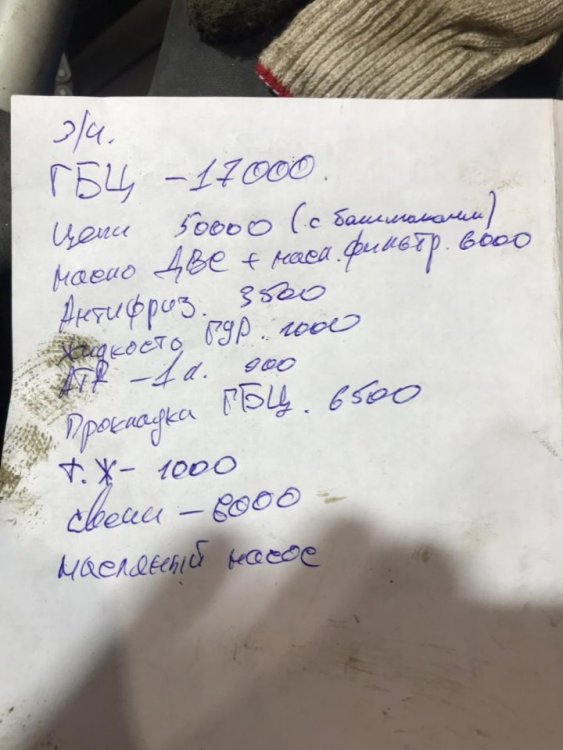 З/ч.
ГБЦ -17000.
Цепи 50000 (с башмаками)
масло ДВС + масл. фильтр. 6000
Антифриз. 3500
жидкость ГУР. 1000
ATF -1л. 900
Прокладка ГБЦ. 6500
Т.Ж- 1000
свечи - 6000
масляный насос